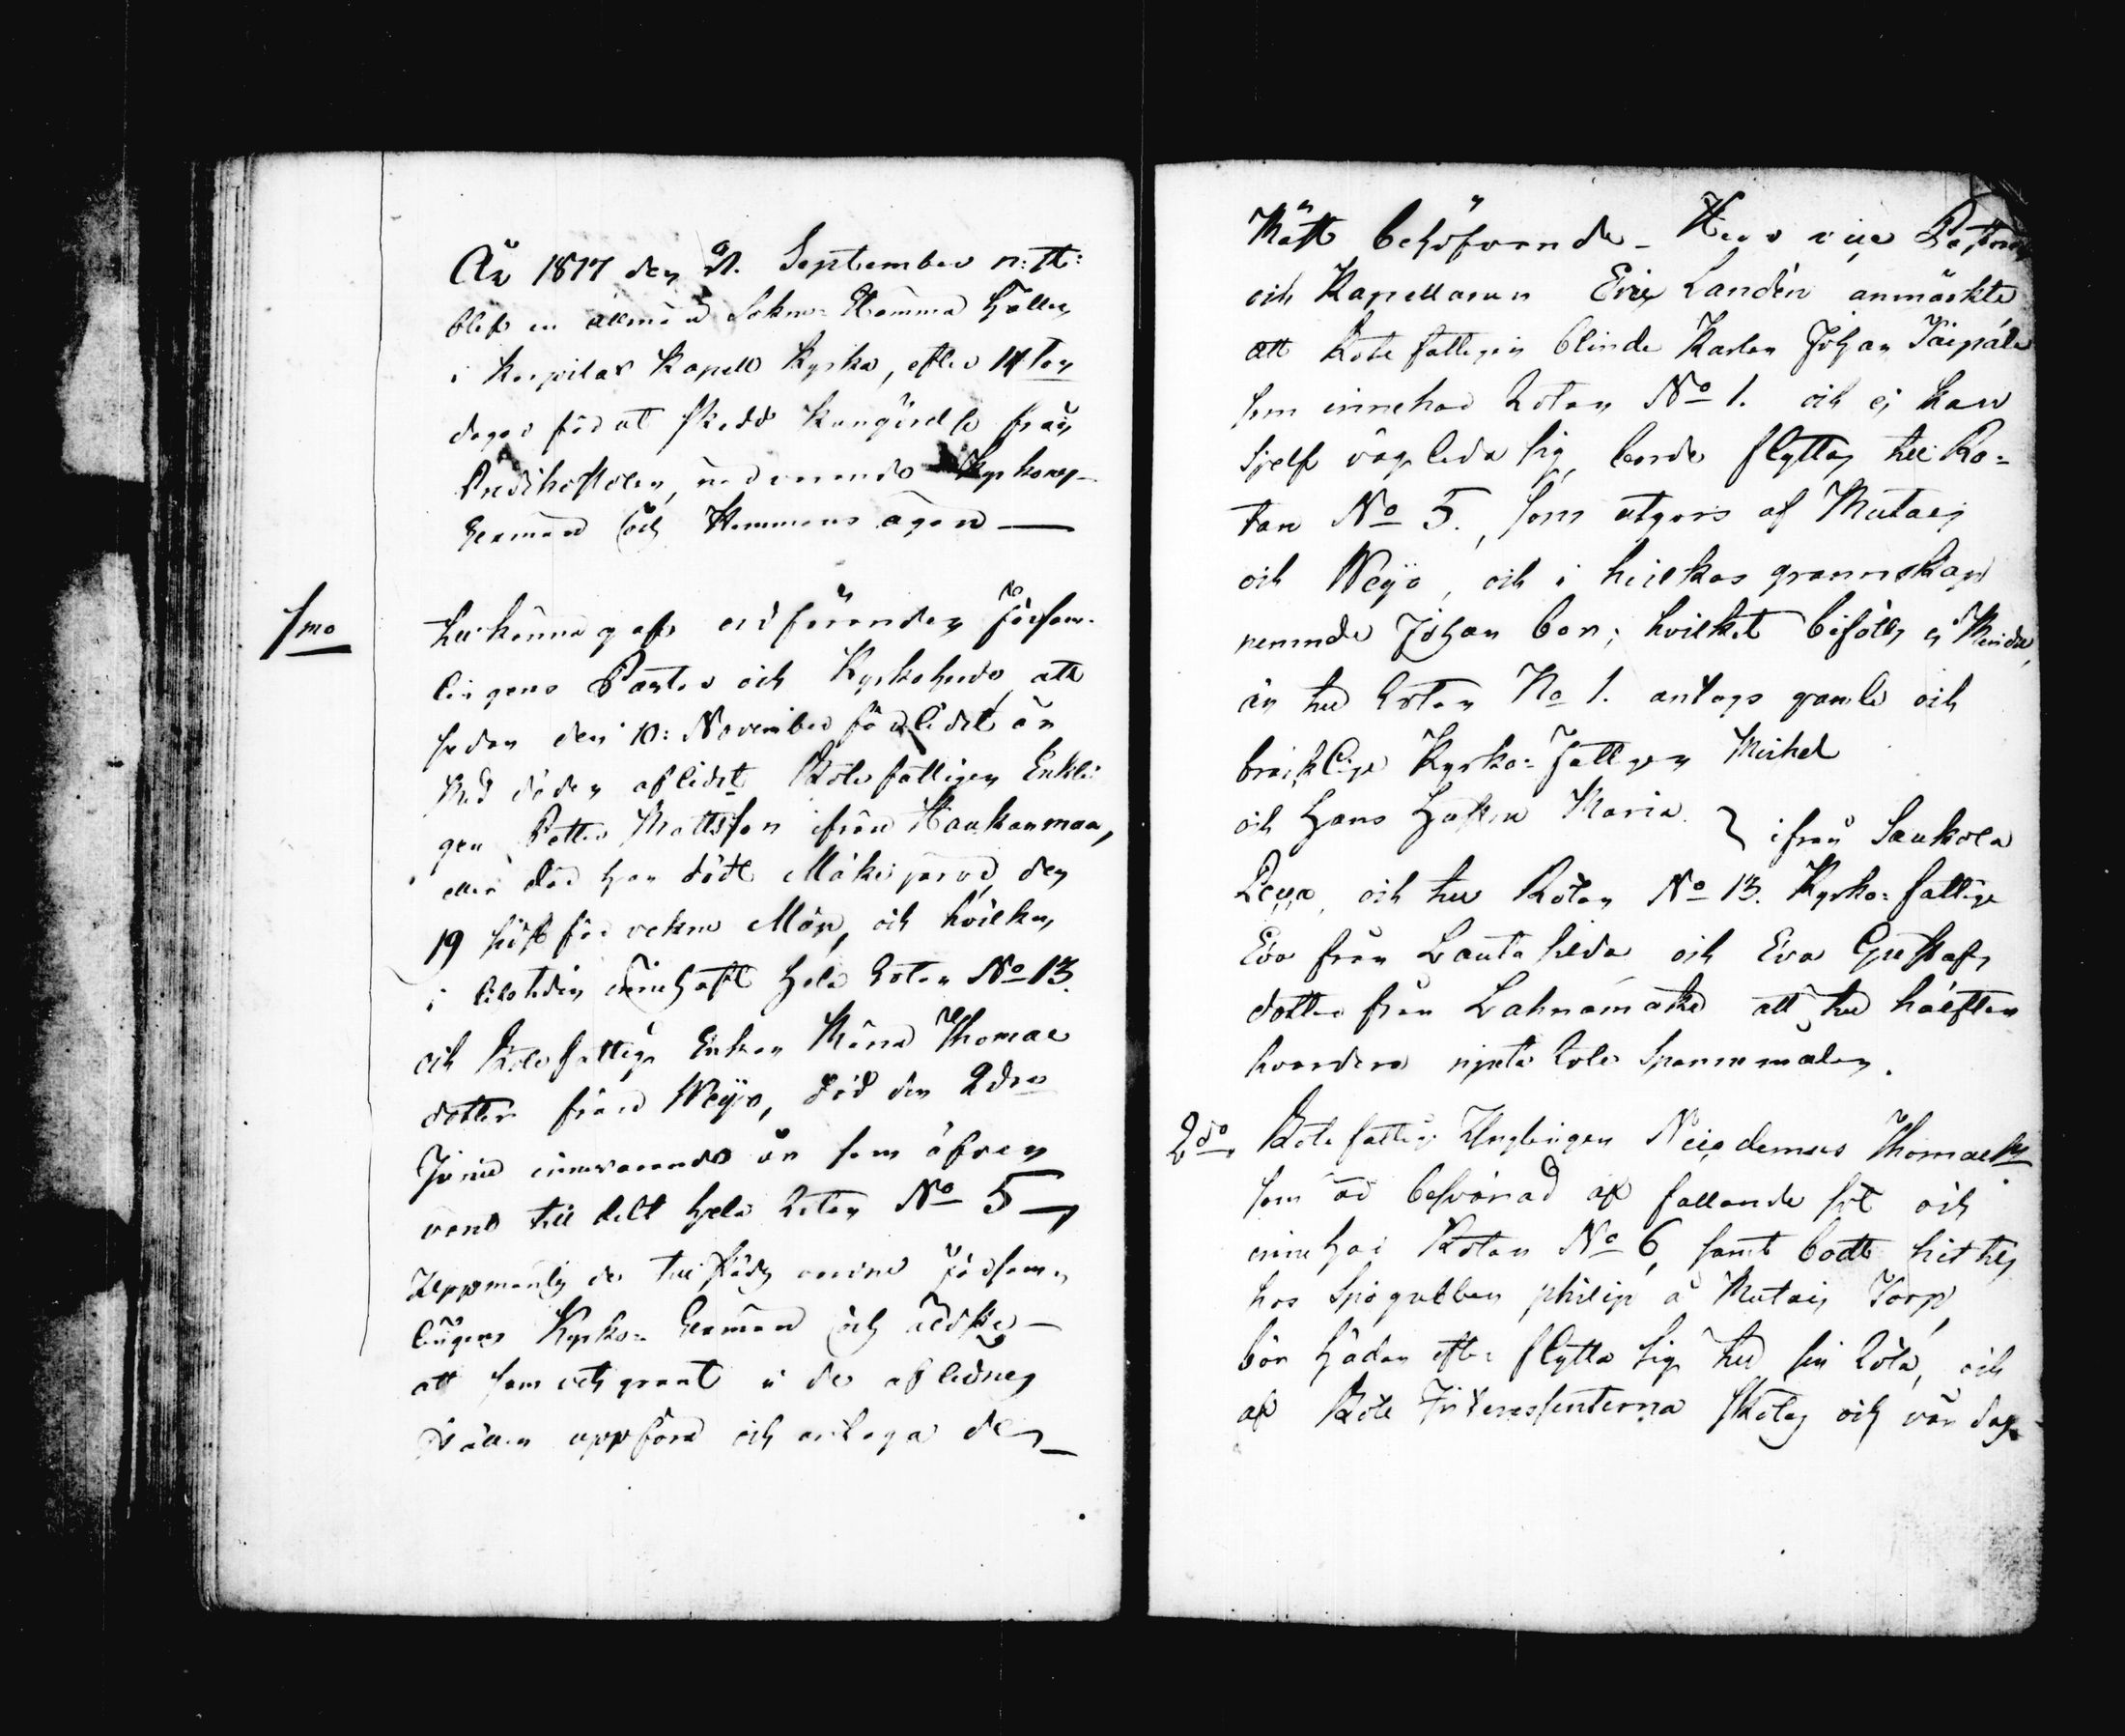 År 1817 den 21. September n: st:
blef en allmän Sokne-Stämma hållen
i Karvilax Kapells Kyrka, efter 14 ton
dagar förut skedd kungörelse från
Predikostolen, närvarande Kyrkones
Sexmän och Hemmans ägare —
1mo
tillkänna gafs ordföranden Försam-
lingens Pastor och Kyrkoherde, att
sedan den 10: November förledet år
med döden aflidet Rotefattigen Enklin-
gen Petter Mattsson ifrån Haukanmaa,
eller där han dödt Mäkijärvi, den
19 sistförvekne Maji, och hvilken
i lifstiden innehaft hela Rotan No 13.
och Rotefattiga Enkan Maria Thomae
dotter från Weijo, död den 2dra
Junii innevarande år som äfven
varit till delt hela Rotan No 5
Uppmanta de tillstädesvarande Försam-
lingens Kyrko- Sexmän och äldste
att som vetgirant i de aflidnes
ställen uppföra och antaga de
Mäst behöfvande - Herr vice Pastorn
och Kapellanen Eric Landén anmärkte
att Rotefattigen blinde Karlen Johan Taipale
som innehar Rotan No 1. och ej kan
sjelf vägleda sig, borde flyttas till Ro-
tan No 5., som utgörs af Mutain
och Weijo, och i hvilkas grannskap
nemnde Johan bor; hvilket bifölls ej mindre,
än till Rotan No 1. antogs gamle och
bräcklige Kyrko-fattigen Michel
och Hans Hustru Maria } ifrån Saukola
och till Rotan No 13. Kyrko-fattige
Eva från Lauta och Eva Gustafs
dotter från Lahnamäki att till hälften
hvardera njuta Rote Spannemålen.
2do Rotefattige Ynglingen Nicodemus Thomaess.
som är besvärad af fallande sot och
innehar Rotan No 6, samt bodt hittils
hos Spögubben Philip å Mutain Torp,
bör hädan efter flytta sig till sin Rota, och
af Rote Intressenterna skötas och vårdas